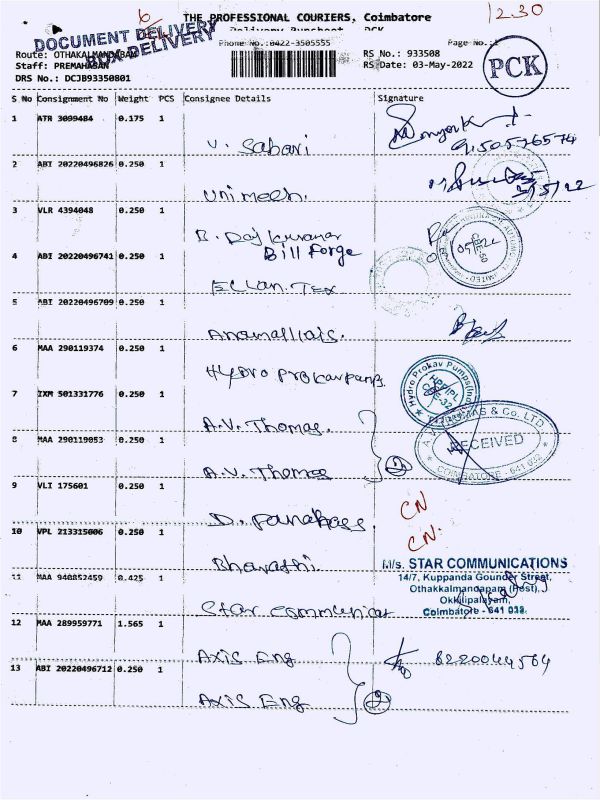 6
12.30
THE PROFESSIONAL COURIERS, Coimbatore
DOCUMENT DELIVERY
BOX DELIVERY
Delivery Runsheet PCK
Phone No.:0422-3505555
Page No.:1
Route: OTHAKALMANDABAM
RS No.: 933508
Staff: PREMAHASAN
RS Date: 03-May-2022
DRS No.: DCJB93350801
PCK
S No Consignment No Weight PCS Consignee Details Signature
1 ATR 3099484 0.175 1
V. Sabari
9150576574
2 ABI 20220496826 0.250 1
Unimech.
3/5/22
3 VLR 4394048 0.250 1
B. Raj Kumar
Bill Forge
4 ABI 20220496741 0.250 1
Ellan. Tex
5 ABI 20220496709 0.250 1
Anamallais.
6 MAA 290119374 0.250 1
Hydro Prokav Pumps
Hydro Prokav Pumps
7 IXM 501331776 0.250 1
A.V. Thomas.
& Co. LTD
8 MAA 290119053 0.250 1
RECEIVED
COIMBATORE - 641 032
A.V. Thomas
2
9 VLI 175601 0.250 1
CN
10 VPL 213315006 0.250 1
CN.
Bharathi
M/s. STAR COMMUNICATIONS
11 MAA 940852459 0.425 1
14/7, Kuppanda Gounder Street,
Othakkalmandapam (Post),
Okkilipalayam,
Coimbatore - 641 032.
Star Communicat
12 MAA 289959771 1.565 1
Axis Eng
8220044564
13 ABI 20220496712 0.250 1
Axis Eng
2